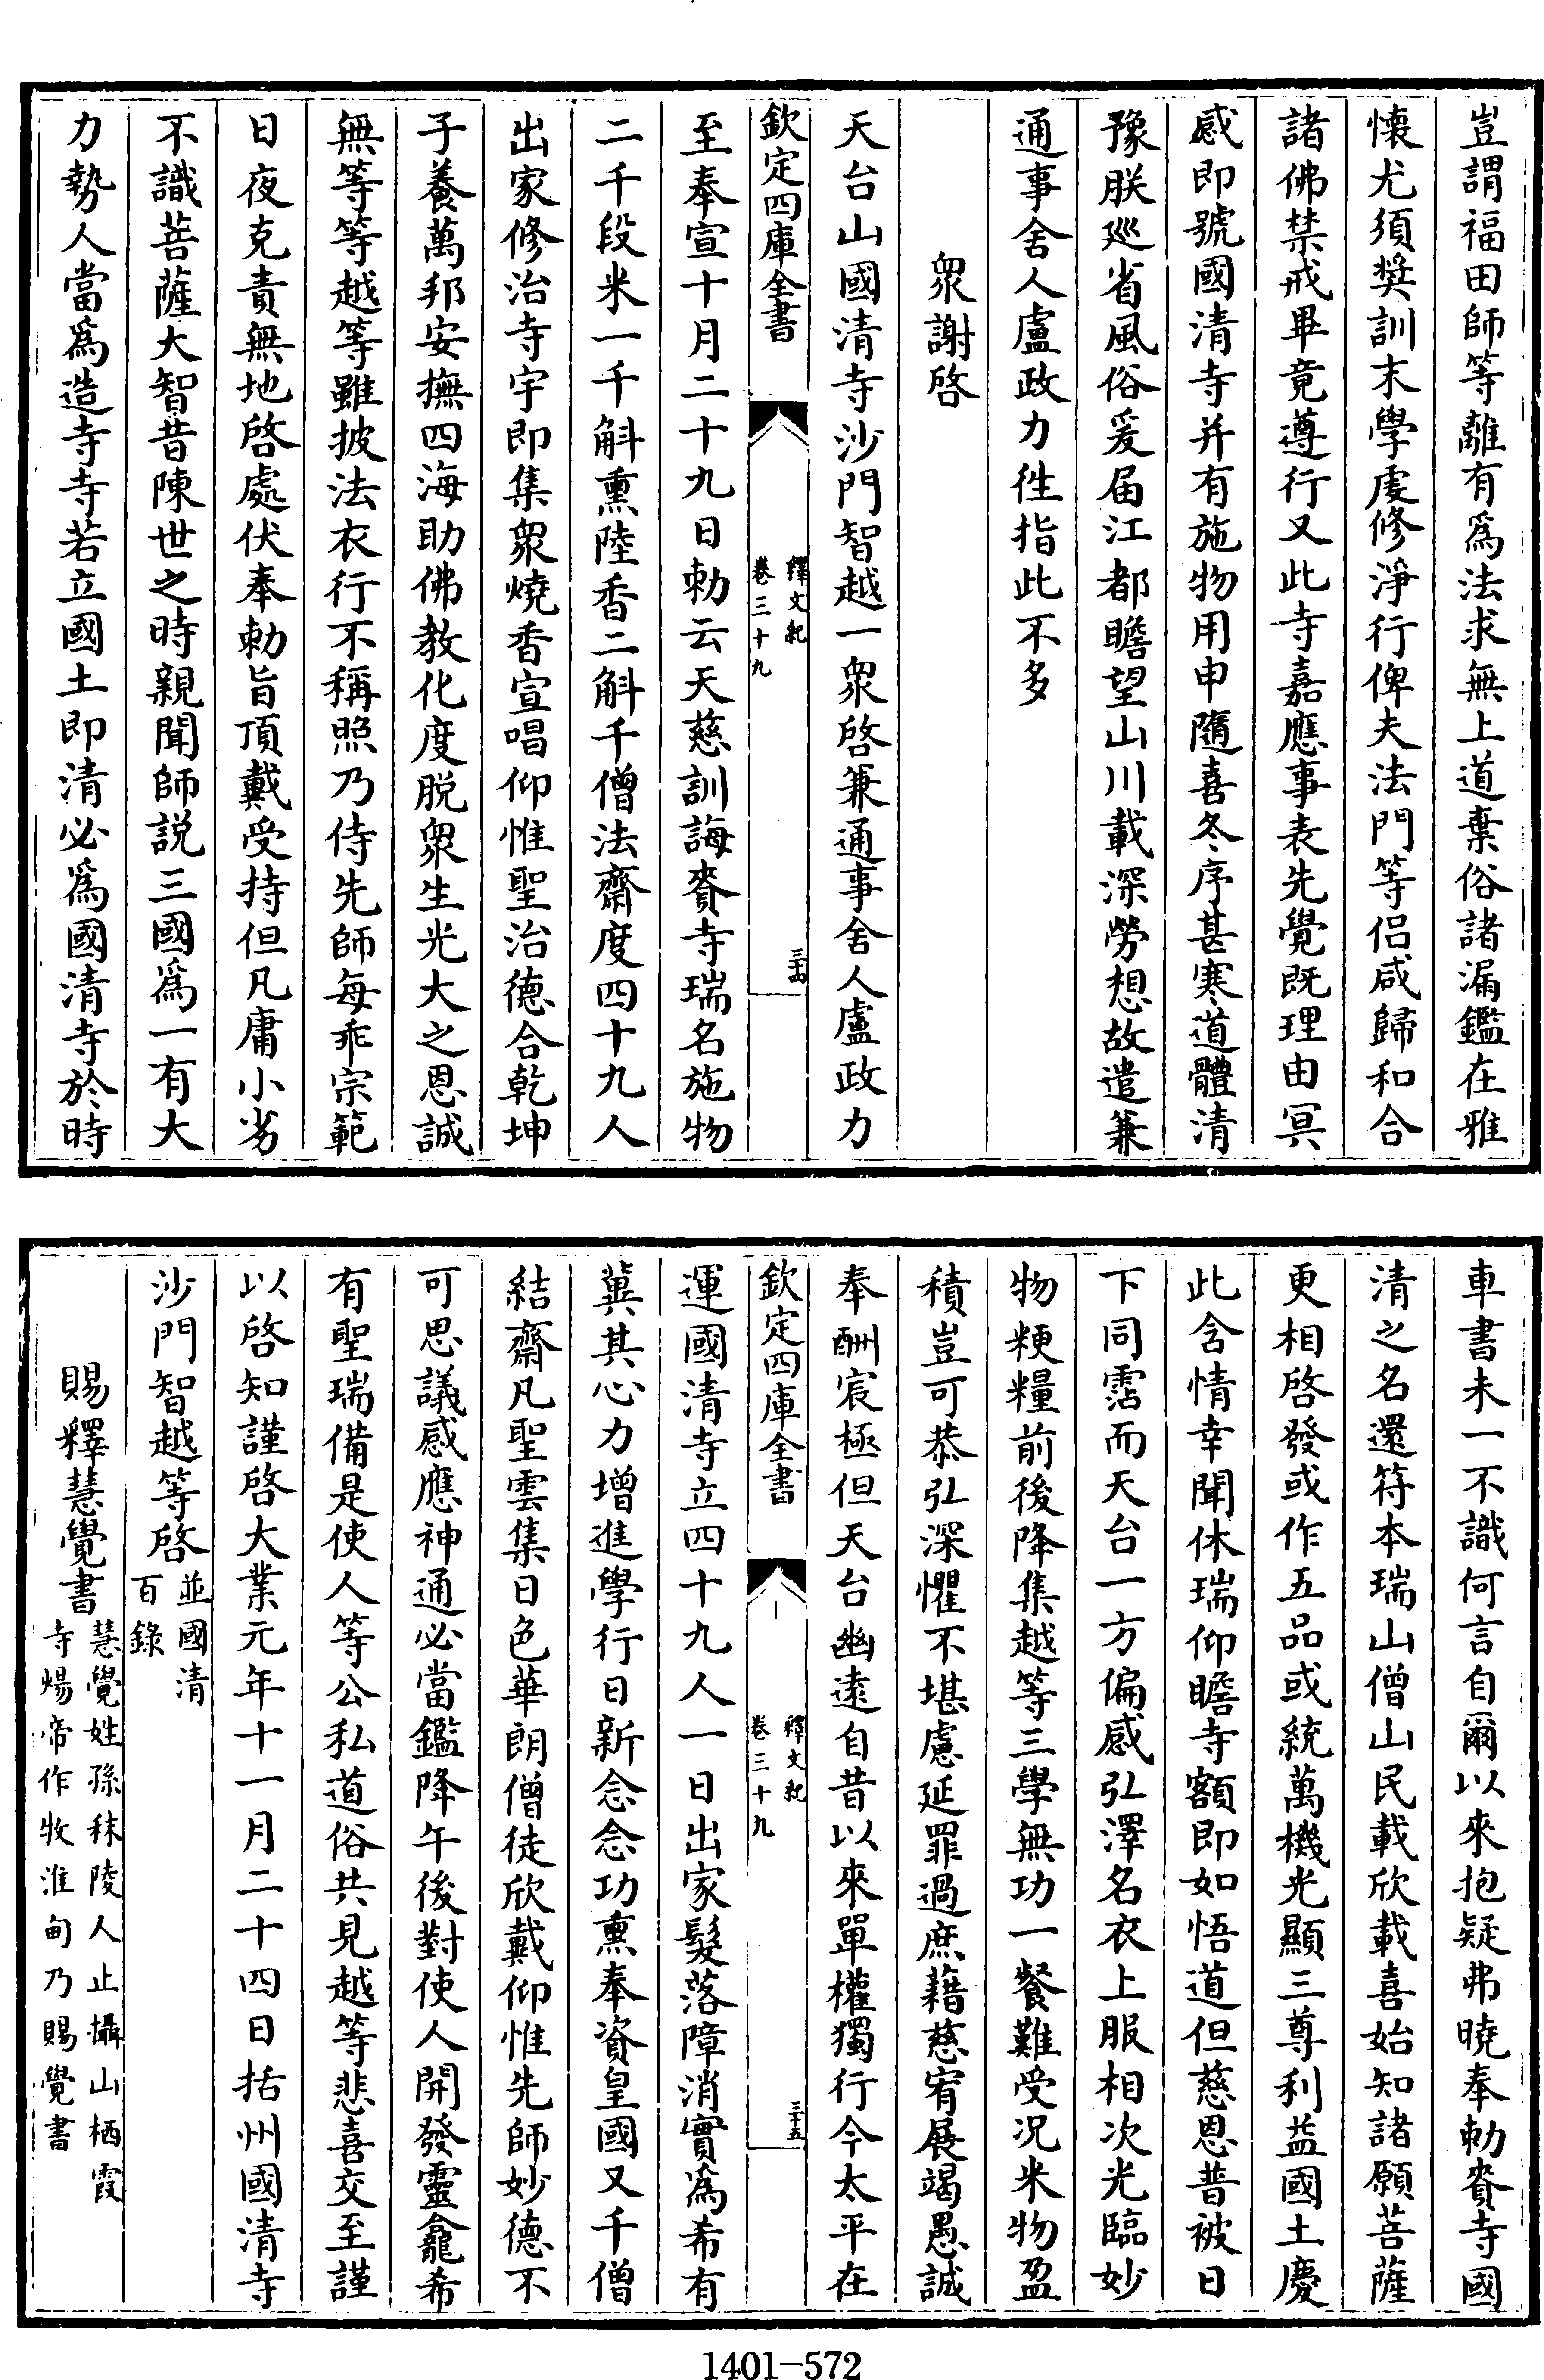 豈謂福田師等離有為法求無上道棄俗諸漏鑑在雅
懷尤須奬訓末學虔修淨行俾夫法門等侣咸歸和合
諸佛禁戒畢竟遵行又此寺嘉應事表先覺既理由冥
感即號國清寺并有施物用申隨喜冬序甚寒道體清
豫朕廵省風俗爰届江都瞻望山川載深勞想故遣兼
通事舍人盧政力徃指此不多
衆謝啓
天台山國清寺沙門智越一衆啓兼通事舍人盧政力
欽定四庫全書
釋文紀
卷三十九
三十四
至奉宣十月二十九日勅云天慈訓誨賚寺瑞名施物
二千段米一千斛熏陸香二斛千僧法齋度四十九人
出家修治寺宇即集衆燒香宣唱仰惟聖治德合乾坤
子養萬邦安撫四海助佛教化度脱衆生光大之恩誠
無等等越等雖披法衣行不稱照乃侍先師每乖宗範
日夜克責無地啓處伏奉勅旨頂戴受持但凡庸小劣
不識菩薩大智昔陳世之時親聞師説三國為一有大
力勢人當為造寺寺若立國土即清必為國清寺於時
車書未一不識何言自爾以來抱疑弗曉奉勅賚寺國
清之名還符本瑞山僧山民載欣載喜始知諸願菩薩
更相啓發或作五品或統萬機光顯三尊利益國土慶
此含情幸聞休瑞仰瞻寺額即如悟道但慈恩普被日
下同霑而天台一方偏感弘澤名衣上服相次光臨妙
物粳糧前後降集越等三學無功一餐難受况米物盈
積豈可恭弘深懼不堪慮延罪過庶藉慈宥展竭愚誠
奉酬宸極但天台幽遠自昔以來單權獨行今太平在
欽定四庫全書
釋文紀
卷三十九
三十五
運國清寺立四十九人一日出家髮落障消實為希有
冀其心力增進學行日新念念功熏奉資皇國又千僧
結齋凡聖雲集日色華朗僧徒欣戴仰惟先師妙德不
可思議感應神通必當鑑降午後對使人開發靈龕希
有聖瑞備是使人等公私道俗共見越等悲喜交至謹
以啓知謹啓大業元年十一月二十四日括州國清寺
沙門智越等啓並國清
百錄
賜釋慧覺書慧覺姓孫秣陵人止攝山栖霞
寺煬帝作牧淮甸乃賜覺書
1401-572